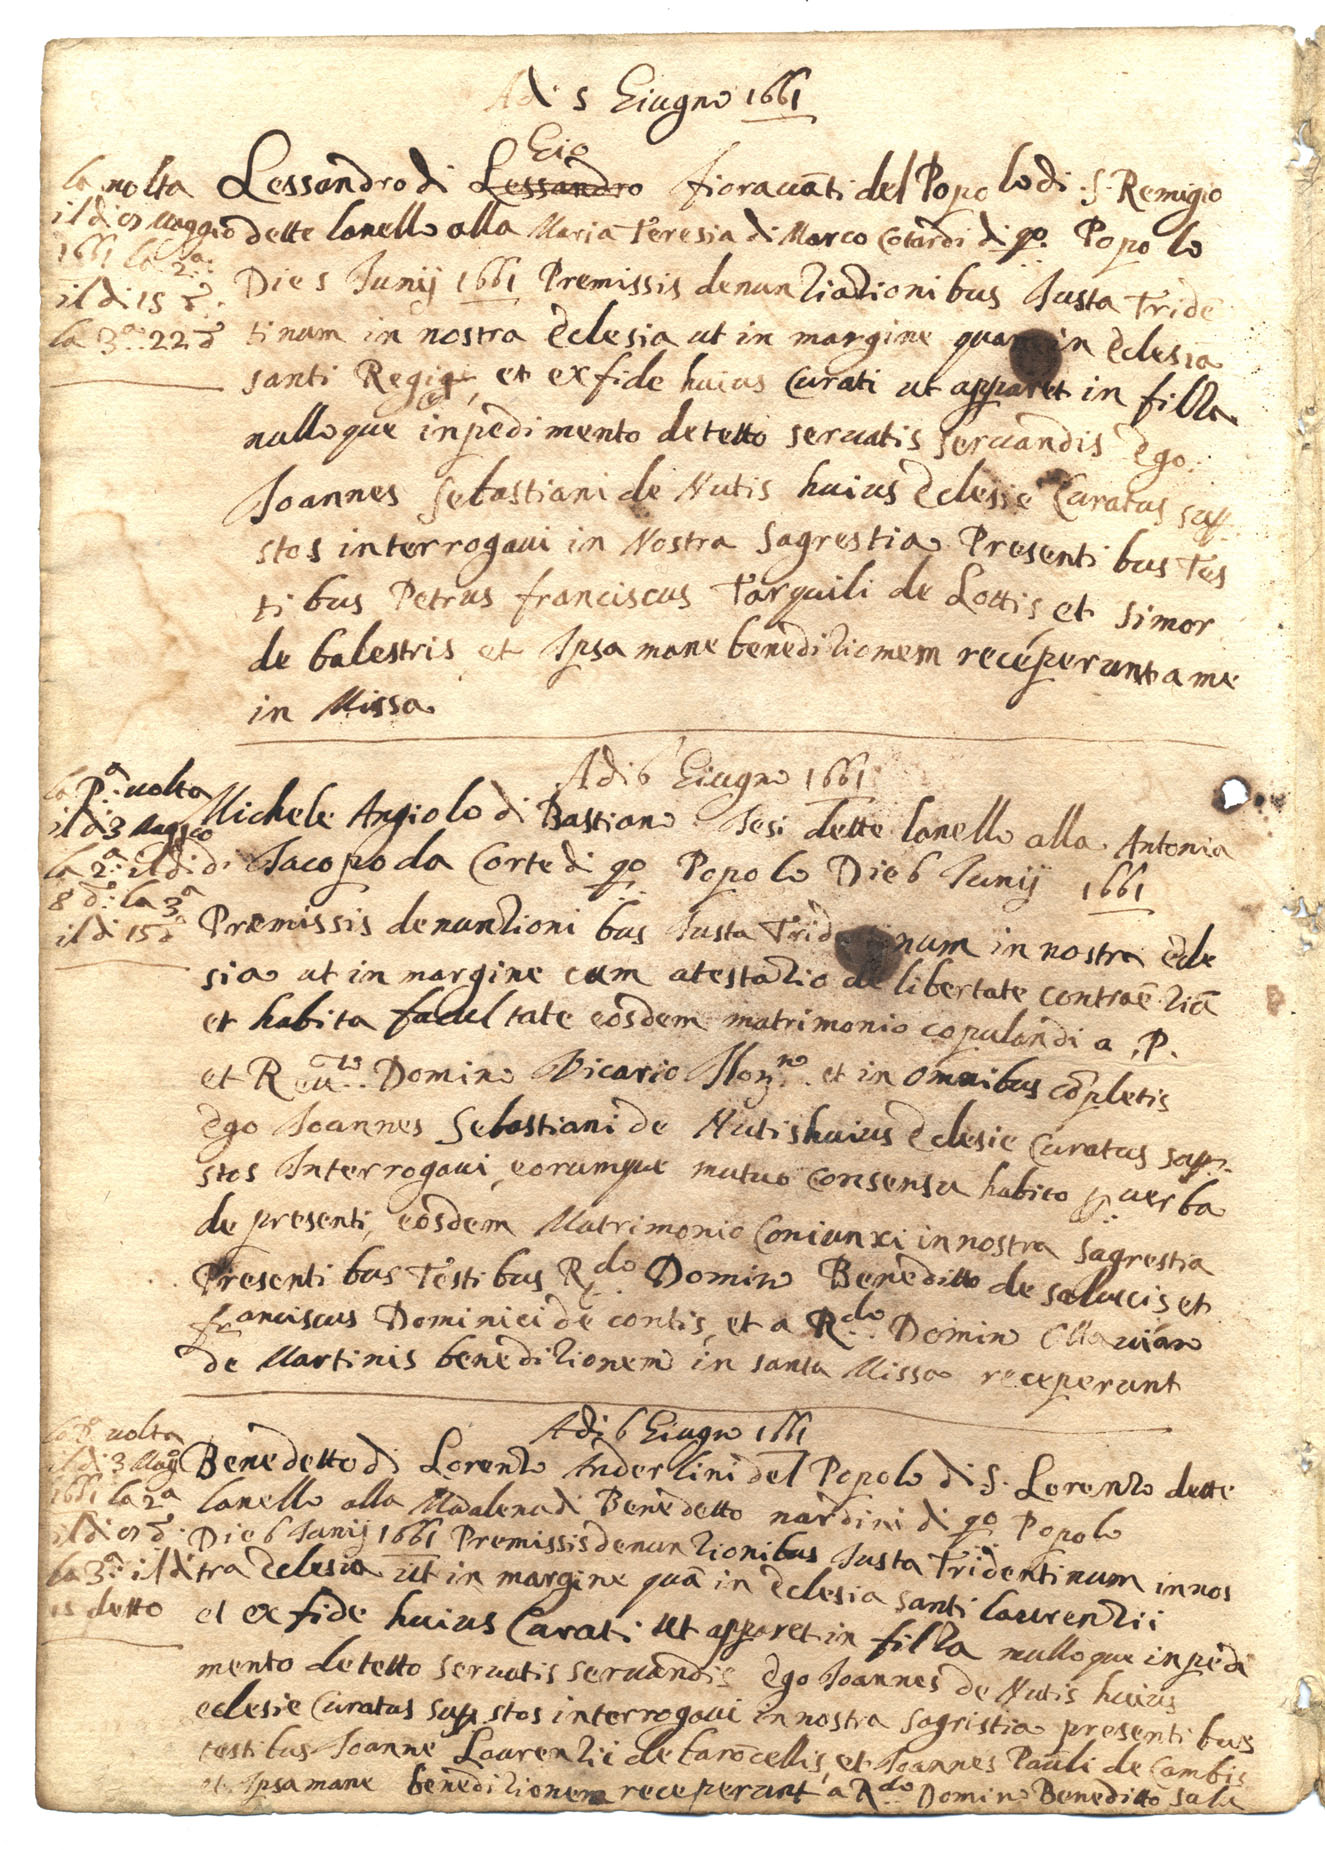 Adi 5 Giugno 1661
la volta
il di 01 Maggio
1661 la 2.a
il di 15 d.o
la 3.a 22 d.o
Gio
Lessandro di Lessandro fioravāti del Popolo di S. Remigio
dette lanello alla Maria Teresia di Marco Cotardi di qo. Popolo
Die 5 Junij 1661 Premissis denunziazionibus Justa Tridē
tinum in nostra Eclesia ut in margine quam in Eclesia
santi et ex fide huius Curati ut apparet in filza
nulloque inpedimento detetto servatis servandis Ego
Joannes Sebastiani de Nutis huius Eclesie Curatus sup.
stos interrogavi in Nostra Sagrestia Presentibus Tes
tibus Petrus franciscus Tarquili de Lottis et Simor
de balestris et Ipsa mane benediziomem receperunt a me
in Missa
la P.a volta
il di 3 Maggio
la 2.a il di
8 d.o la 3.a
il di 15 d.o
Adi 6 Giugno 1661
Michele Angiolo di Bastiano Sesi dette lanello alla Antonia
di Jacopo da Corte di qo Popolo Die 6 Junij 1661
Premissis denunzionibus Justa Trid num in nostra Ecle
sia ut in margine cum atestazio de libertate
et habita facultate eosdem matrimonio copulandi a P.
et R Domino Vicario et in omnibus cōpletis
Ego Joannes Sebastiani de Nutis huius Eclesie Curatus sup.
stos Interrogavi, eorumque mutuo consensu habito p verba
de presenti, eosdem Matrimonio Coniunxi in nostra sagrestia
Presentibus Testibus R.do Domino Beneditto de salucis et
franciscus Dominici de contis, et a R.do Domino Ottaviano
de Martinis benedizionem in santa Missa receperunt
la P.a volta
il di 3 Magg
1661 la 2.a
il di 01 d.
la 3.a il di
15 detto
Adi 6 Giugno 1661
Benedetto di Lorenzo Anderlini del Popolo di S. Lorenzo dette
lanello alla Madalena di Benedetto nardini di qo Popolo
Die 6 Junij 1661 Premissis denunzionibus Justa Tridentinum in nos
tra Eclesia ut in margine quā in Eclesia santi laurenzii
et ex fide huius Curati ut apparet in filza nulloque inpedi
mento detetto servatis servandis Ego Joannes de Nutis huius
eclesie Curatus sup stos interrogavi in nostra sagristia presentibus
testibus Joanne Laurenzii de baroncellis, et Joannes Pauli de Cambis
et Ipsa mane benedizionem receperunt a R.do Domino Beneditto salu